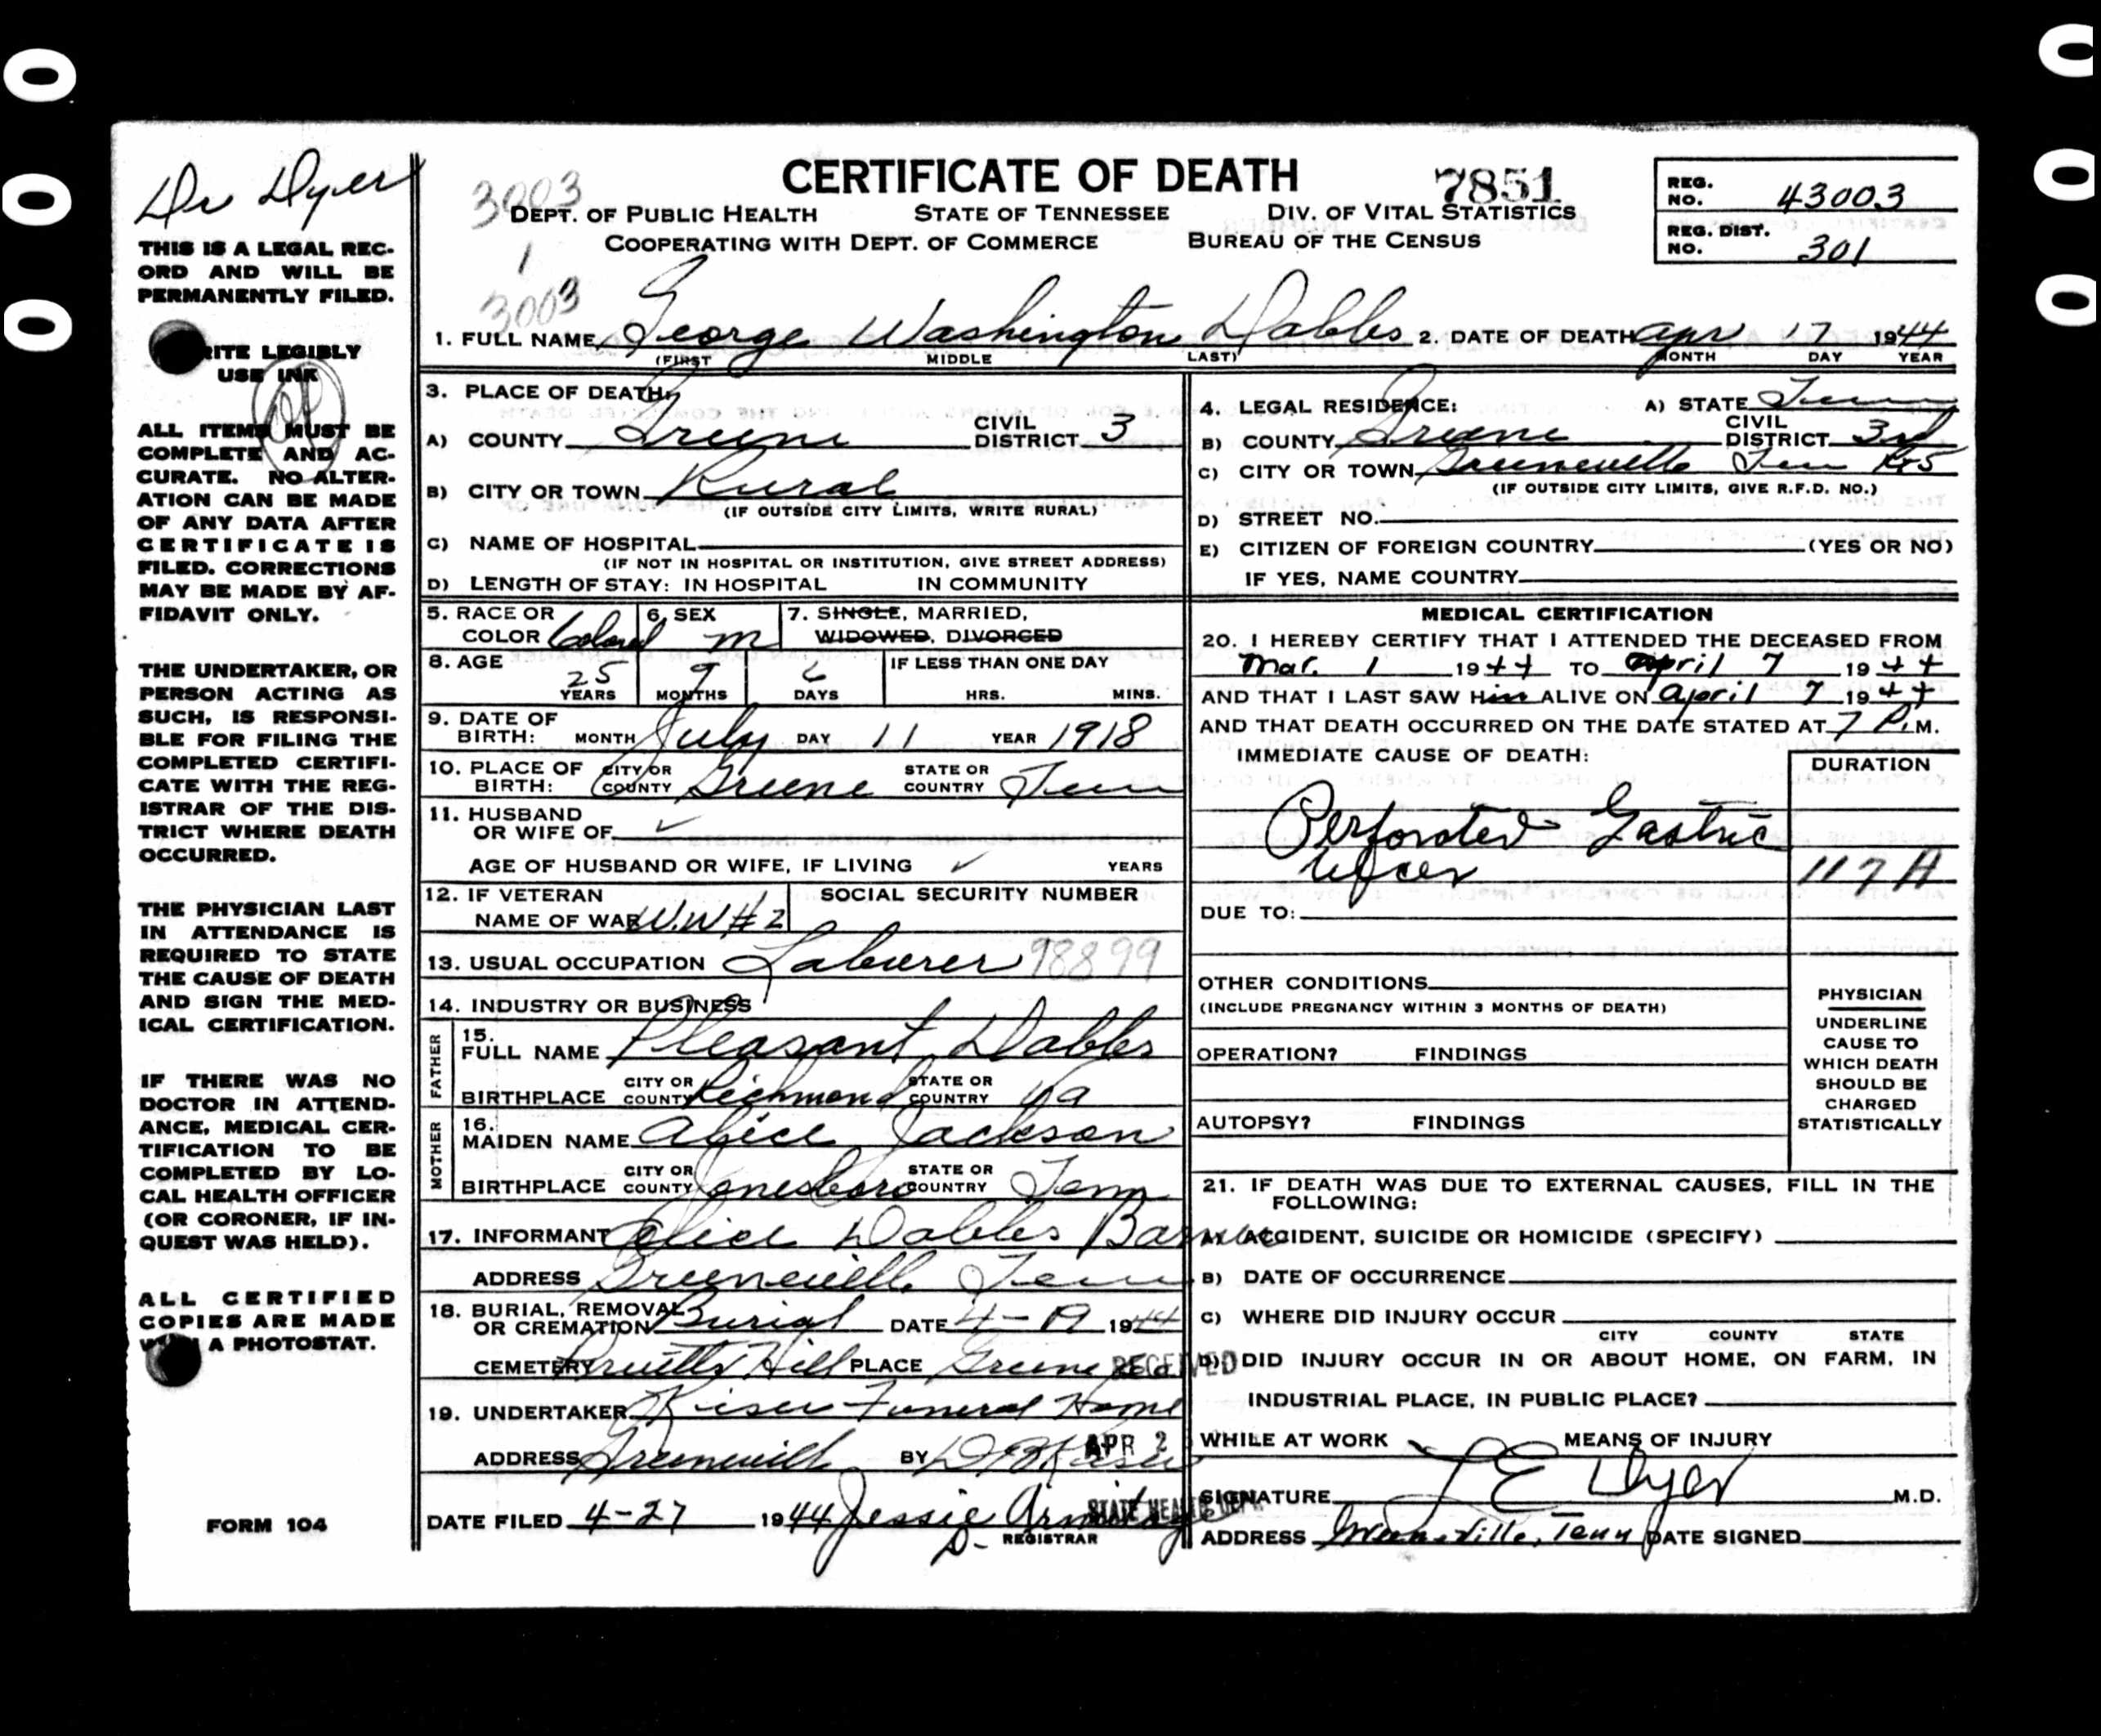 Dr Dyer
THIS IS A LEGAL REC-
ORD AND WILL BE
PERMANENTLY FILED.
RITE LEGIBLY
USE INK
ALL ITEMS MUST BE
COMPLETE AND AC-
CURATE. NO ALTER-
ATION CAN BE MADE
OF ANY DATA AFTER
CERTIFICATE IS
FILED. CORRECTIONS
MAY BE MADE BY AF-
FIDAVIT ONLY.
THE UNDERTAKER, OR
PERSON ACTING AS
SUCH, IS RESPONSI-
BLE FOR FILING THE
COMPLETED CERTIFI-
CATE WITH THE REG-
ISTRAR OF THE DIS-
TRICT WHERE DEATH
OCCURRED.
THE PHYSICIAN LAST
IN ATTENDANCE IS
REQUIRED TO STATE
THE CAUSE OF DEATH
AND SIGN THE MED-
ICAL CERTIFICATION.
IF THERE WAS NO
DOCTOR IN ATTEND-
ANCE, MEDICAL CER-
TIFICATION TO BE
COMPLETED BY LO-
CAL HEALTH OFFICER
(OR CORONER, IF IN-
QUEST WAS HELD).
ALL CERTIFIED
COPIES ARE MADE
A PHOTOSTAT.
FORM 104
CERTIFICATE OF DEATH 7851
3003 DEPT. OF PUBLIC HEALTH STATE OF TENNESSEE DIV. OF VITAL STATISTICS
COOPERATING WITH DEPT. OF COMMERCE BUREAU OF THE CENSUS
1
3003
REG. NO. 43003
REG. DIST. NO. 301
1. FULL NAME George Washington Dabbs 2. DATE OF DEATH Apr 17 1944
(FIRST MIDDLE LAST) MONTH DAY YEAR
3. PLACE OF DEATH:
A) COUNTY Greene CIVIL DISTRICT 3
B) CITY OR TOWN Rural
(IF OUTSIDE CITY LIMITS, WRITE RURAL)
C) NAME OF HOSPITAL
(IF NOT IN HOSPITAL OR INSTITUTION, GIVE STREET ADDRESS)
D) LENGTH OF STAY: IN HOSPITAL IN COMMUNITY
4. LEGAL RESIDENCE: A) STATE Tenn
B) COUNTY Greene CIVIL DISTRICT 3rd
C) CITY OR TOWN Greeneville Tenn Rt 5
(IF OUTSIDE CITY LIMITS, GIVE R.F.D. NO.)
D) STREET NO.
E) CITIZEN OF FOREIGN COUNTRY (YES OR NO)
IF YES, NAME COUNTRY
5. RACE OR COLOR Colored 6. SEX m 7. SINGLE, MARRIED,
WIDOWED, DIVORCED
8. AGE 25 YEARS 9 MONTHS 6 DAYS IF LESS THAN ONE DAY HRS. MINS.
9. DATE OF BIRTH: MONTH July DAY 11 YEAR 1918
10. PLACE OF BIRTH: CITY OR COUNTY Greene STATE OR COUNTRY Tenn
11. HUSBAND OR WIFE OF ✓
AGE OF HUSBAND OR WIFE, IF LIVING ✓ YEARS
12. IF VETERAN NAME OF WAR W.W #2 SOCIAL SECURITY NUMBER
13. USUAL OCCUPATION Laburer 98899
14. INDUSTRY OR BUSINESS
FATHER
15. FULL NAME Pleasant Dabbs
BIRTHPLACE CITY OR COUNTY Richmond STATE OR COUNTRY Va
MOTHER
16. MAIDEN NAME Alice Jackson
BIRTHPLACE CITY OR COUNTY Jonesboro STATE OR COUNTRY Tenn
17. INFORMANT Alice Dabbs
ADDRESS Greeneville Tenn
18. BURIAL, REMOVAL OR CREMATION Burial DATE 4-19 1944
CEMETERY Pruitts Hill PLACE Greene Co.
19. UNDERTAKER Kiser Funeral Home
ADDRESS Greeneville BY D B Kiser
DATE FILED 4-27 1944 Jessie
REGISTRAR
RECEIVED
APR 2
STATE HEALTH DEPT.
MEDICAL CERTIFICATION
20. I HEREBY CERTIFY THAT I ATTENDED THE DECEASED FROM
Mar. 1 1944 TO April 7 1944
AND THAT I LAST SAW Him ALIVE ON April 7 1944
AND THAT DEATH OCCURRED ON THE DATE STATED AT 7 P.M.
IMMEDIATE CAUSE OF DEATH: DURATION
Perforated Gastric
Ulcer 117A
DUE TO:
OTHER CONDITIONS
(INCLUDE PREGNANCY WITHIN 3 MONTHS OF DEATH)
OPERATION? FINDINGS
AUTOPSY? FINDINGS
PHYSICIAN
UNDERLINE
CAUSE TO
WHICH DEATH
SHOULD BE
CHARGED
STATISTICALLY
21. IF DEATH WAS DUE TO EXTERNAL CAUSES, FILL IN THE
FOLLOWING:
A) ACCIDENT, SUICIDE OR HOMICIDE (SPECIFY)
B) DATE OF OCCURRENCE
C) WHERE DID INJURY OCCUR
CITY COUNTY STATE
D) DID INJURY OCCUR IN OR ABOUT HOME, ON FARM, IN
INDUSTRIAL PLACE, IN PUBLIC PLACE?
WHILE AT WORK MEANS OF INJURY
SIGNATURE L E Dyer M.D.
ADDRESS Greeneville, Tenn DATE SIGNED